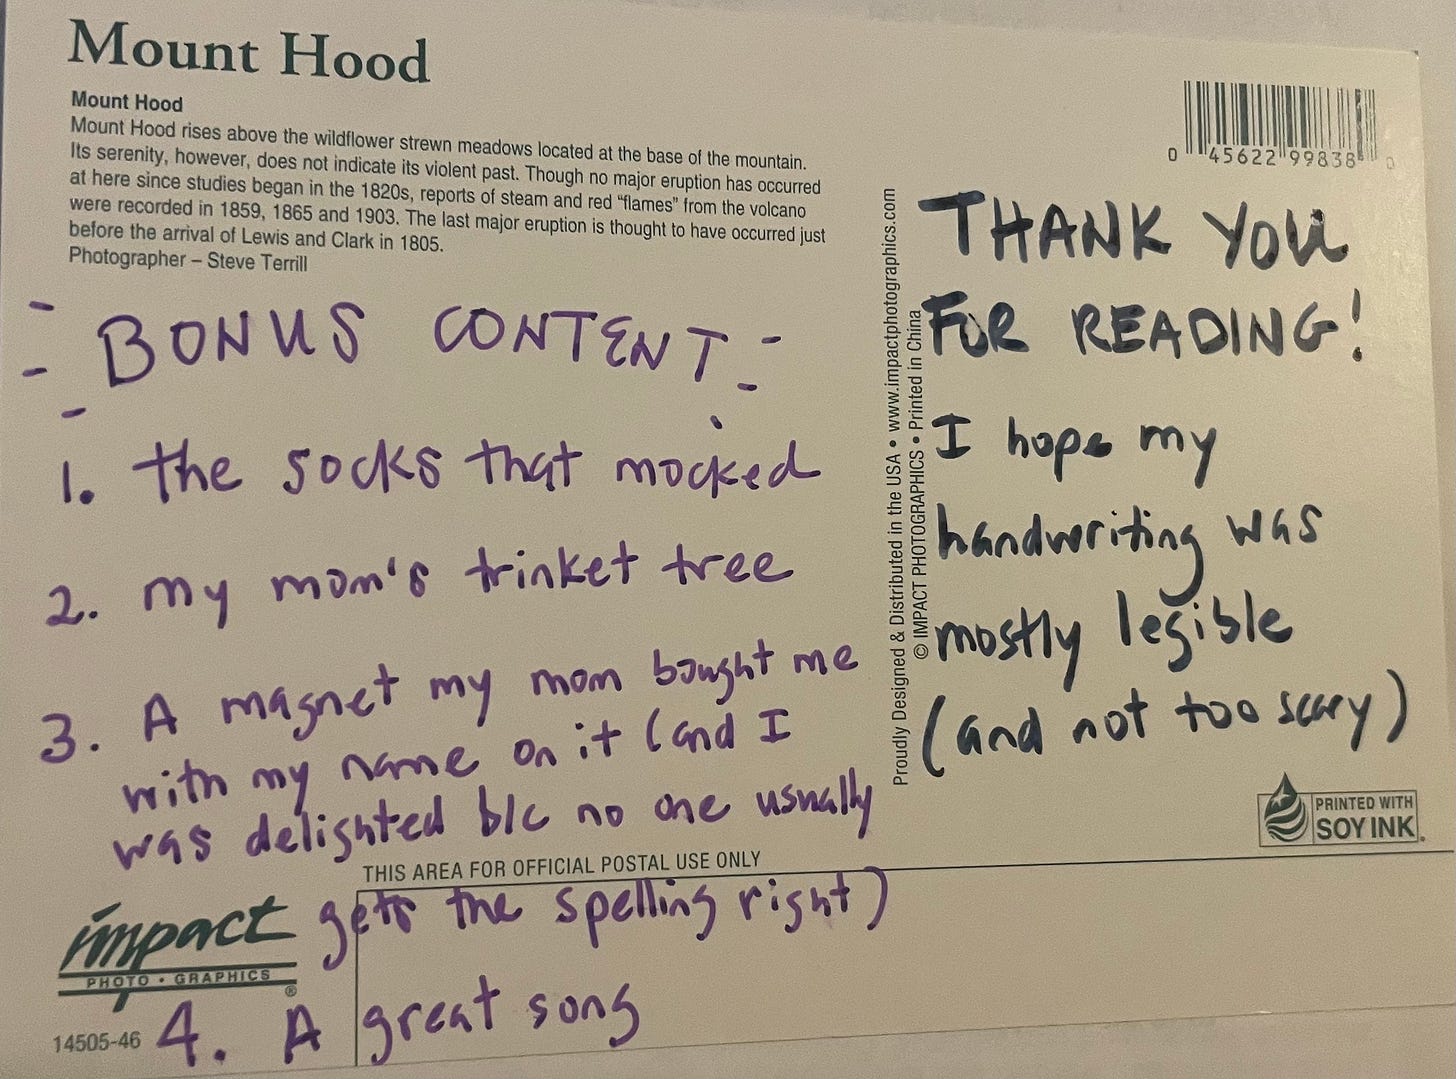 Mount Hood
Mount Hood
Mount Hood rises above the wildflower strewn meadows located at the base of the mountain.
Its serenity, however, does not indicate its violent past. Though no major eruption has occurred
at here since studies began in the 1820s, reports of steam and red “flames” from the volcano
were recorded in 1859, 1865 and 1903. The last major eruption is thought to have occurred just
before the arrival of Lewis and Clark in 1805.
Photographer – Steve Terrill
BONUS CONTENT
1. the socks that mocked
2. my mom's trinket tree
3. A magnet my mom bought me
with my name on it (and I
was delighted b/c no one usually
gets the spelling right)
4. A great song
impact
PHOTO • GRAPHICS
®
14505-46
THIS AREA FOR OFFICIAL POSTAL USE ONLY
Proudly Designed & Distributed in the USA • www.impactphotographics.com
© IMPACT PHOTOGRAPHICS • Printed in China
0 45622 99838 0
THANK YOU
FOR READING!
I hope my
handwriting was
mostly legible
(and not too scary)
PRINTED WITH
SOY INK